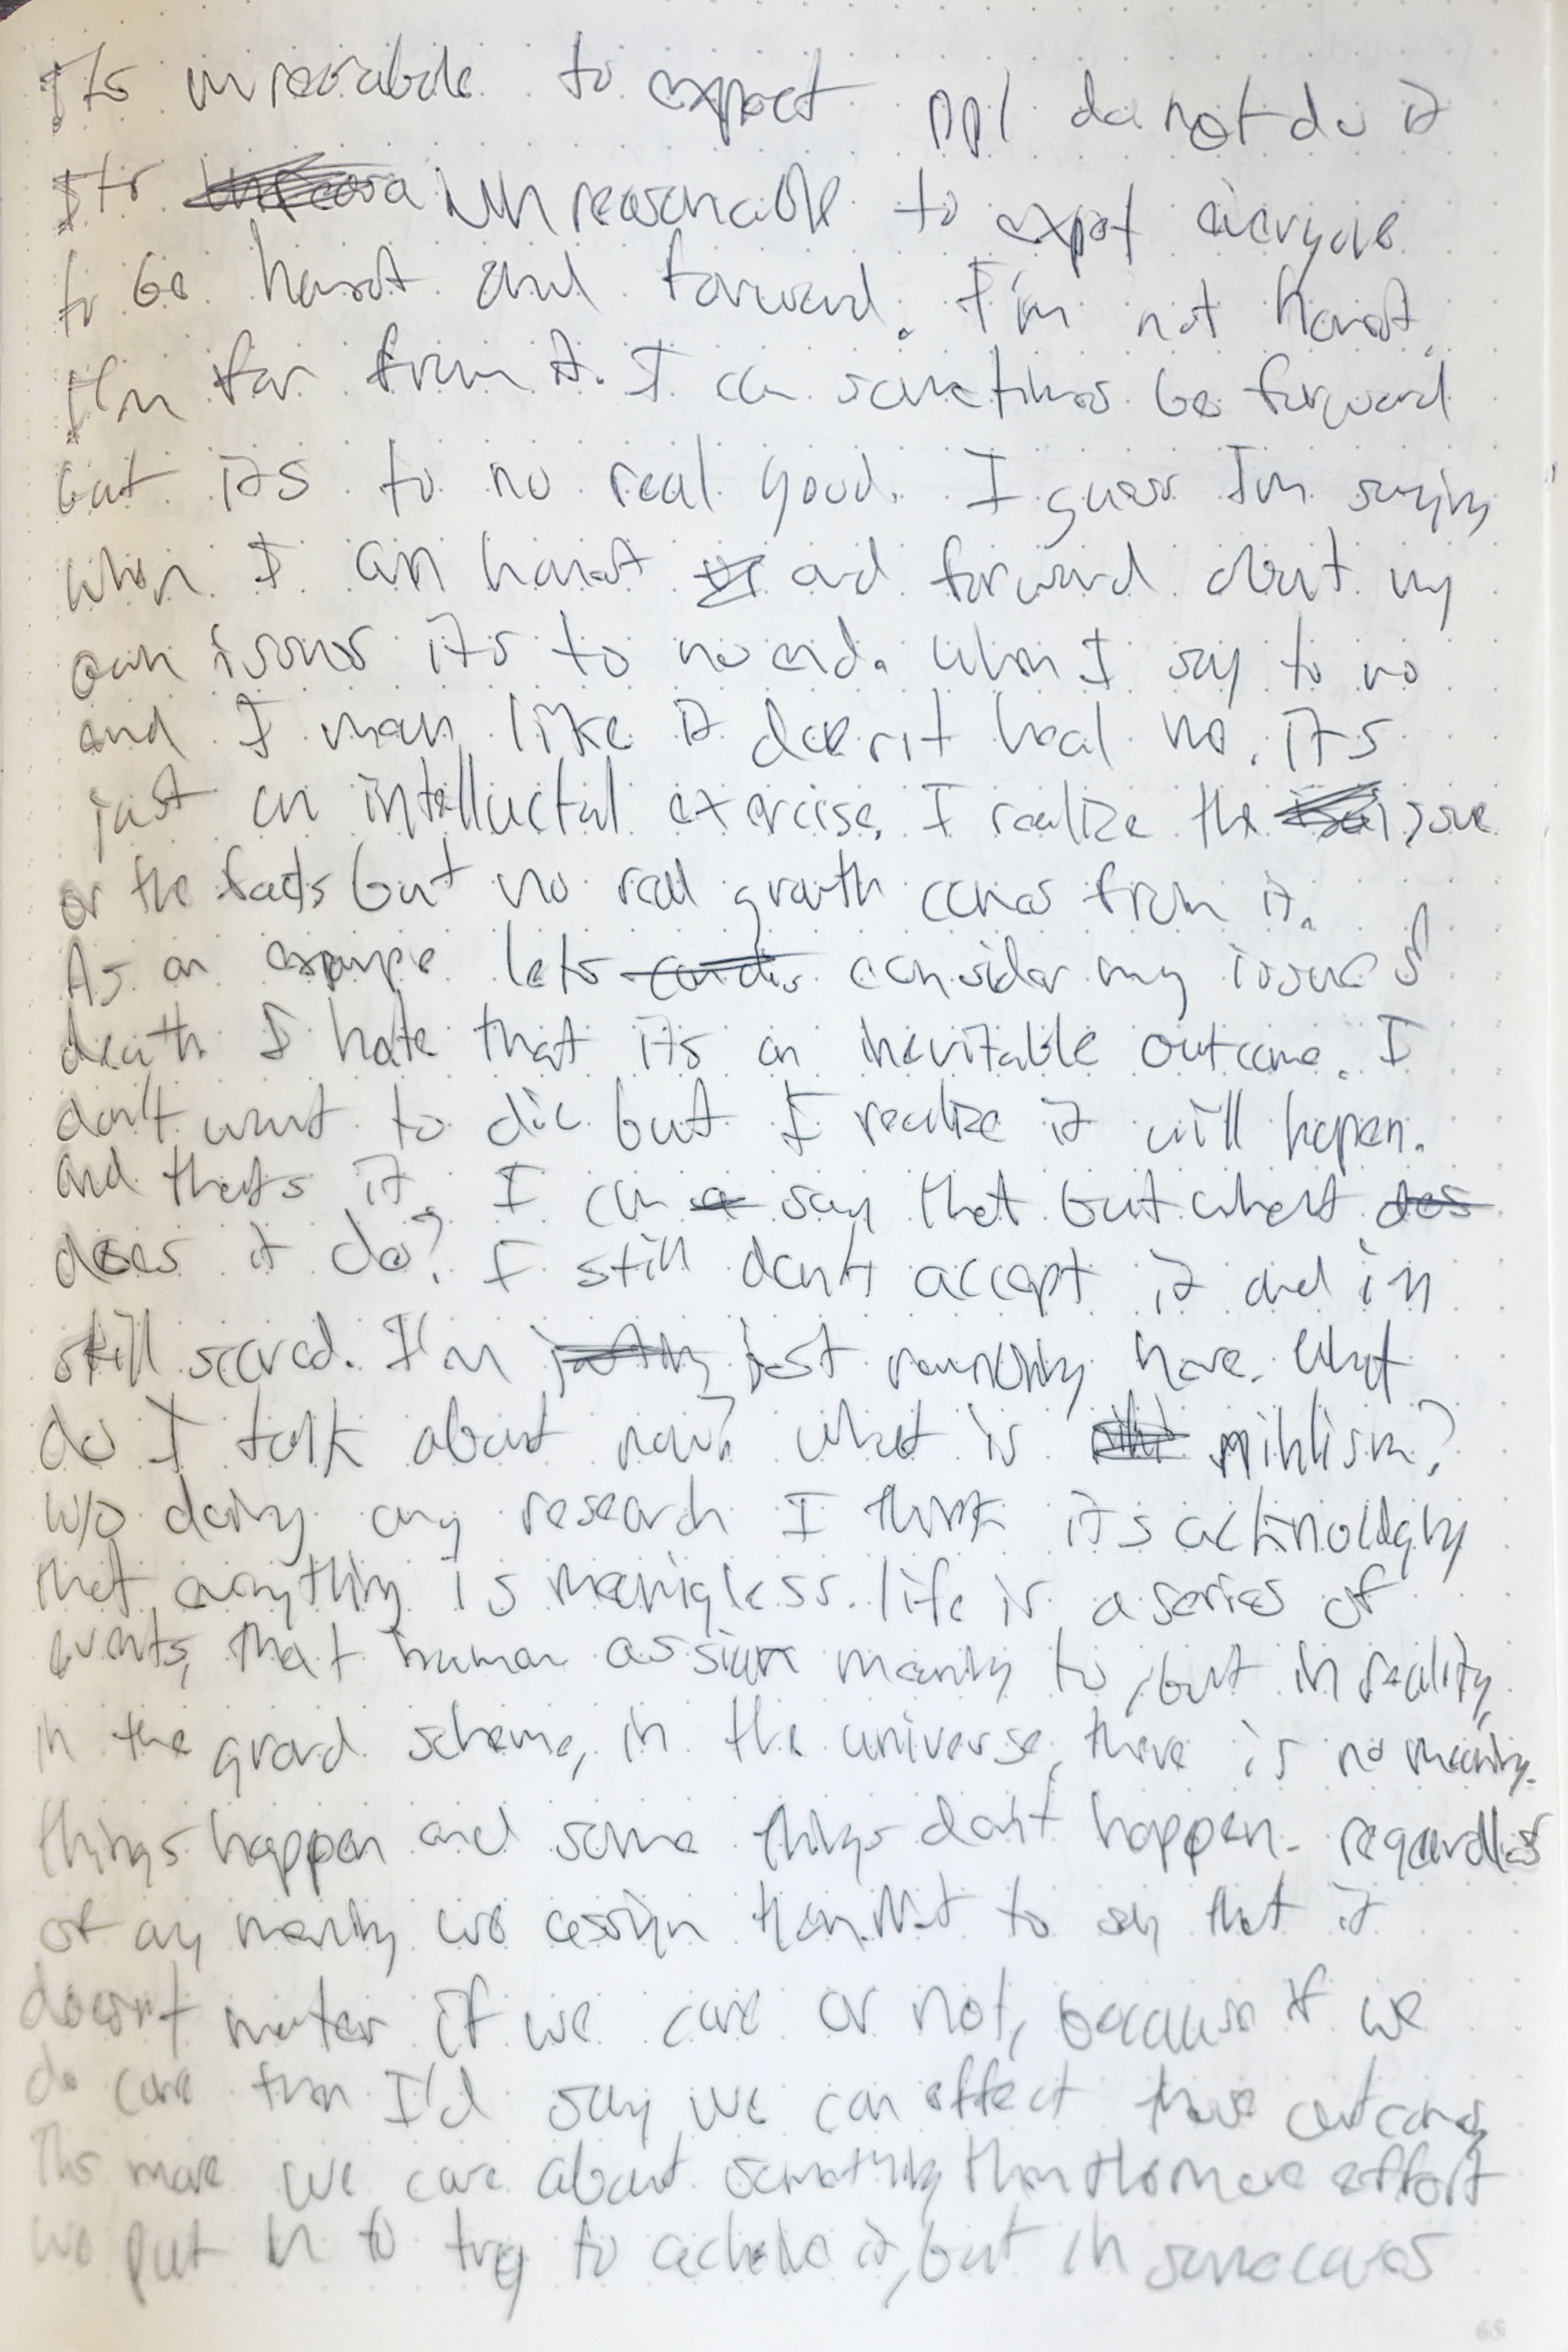 Its unreasonable to expect ppl do not do it
Its unreasonable to expect everyone
to be honest and forward. I'm not honest,
I'm far from it. I can sometimes be forward
but its to no real good. I guess Im saying
when I am honest and forward about my
own issues its to no end. When I say to no
end I mean like it doesn't heal me. its
just an intellectal exercise. I realize the issue
or the facts but no real growth comes from it.
As an example lets consider my issue of
death I hate that its an inevitable outcome. I
don't want to die but I realize it will hapen.
and thats it. I can say that but what
does it do? I still don't accept it and im
still scared. I'm just rambling here. What
do I talk about now? what is nihlism?
w/o doing any research I think its
that everything is meaningless. life is a series of
events, that human assign meaning to, but in reality,
in the grand scheme, in the universe, there is no meaning.
things happen and some things don't happen. regardless
of any meaning we assign them. Not to say that it
doesn't matter if we care or not, because if we
do care then I'd say we can effect those outcomes,
The more we care about something then the more effort
we put in to try to it, but in some cases
65